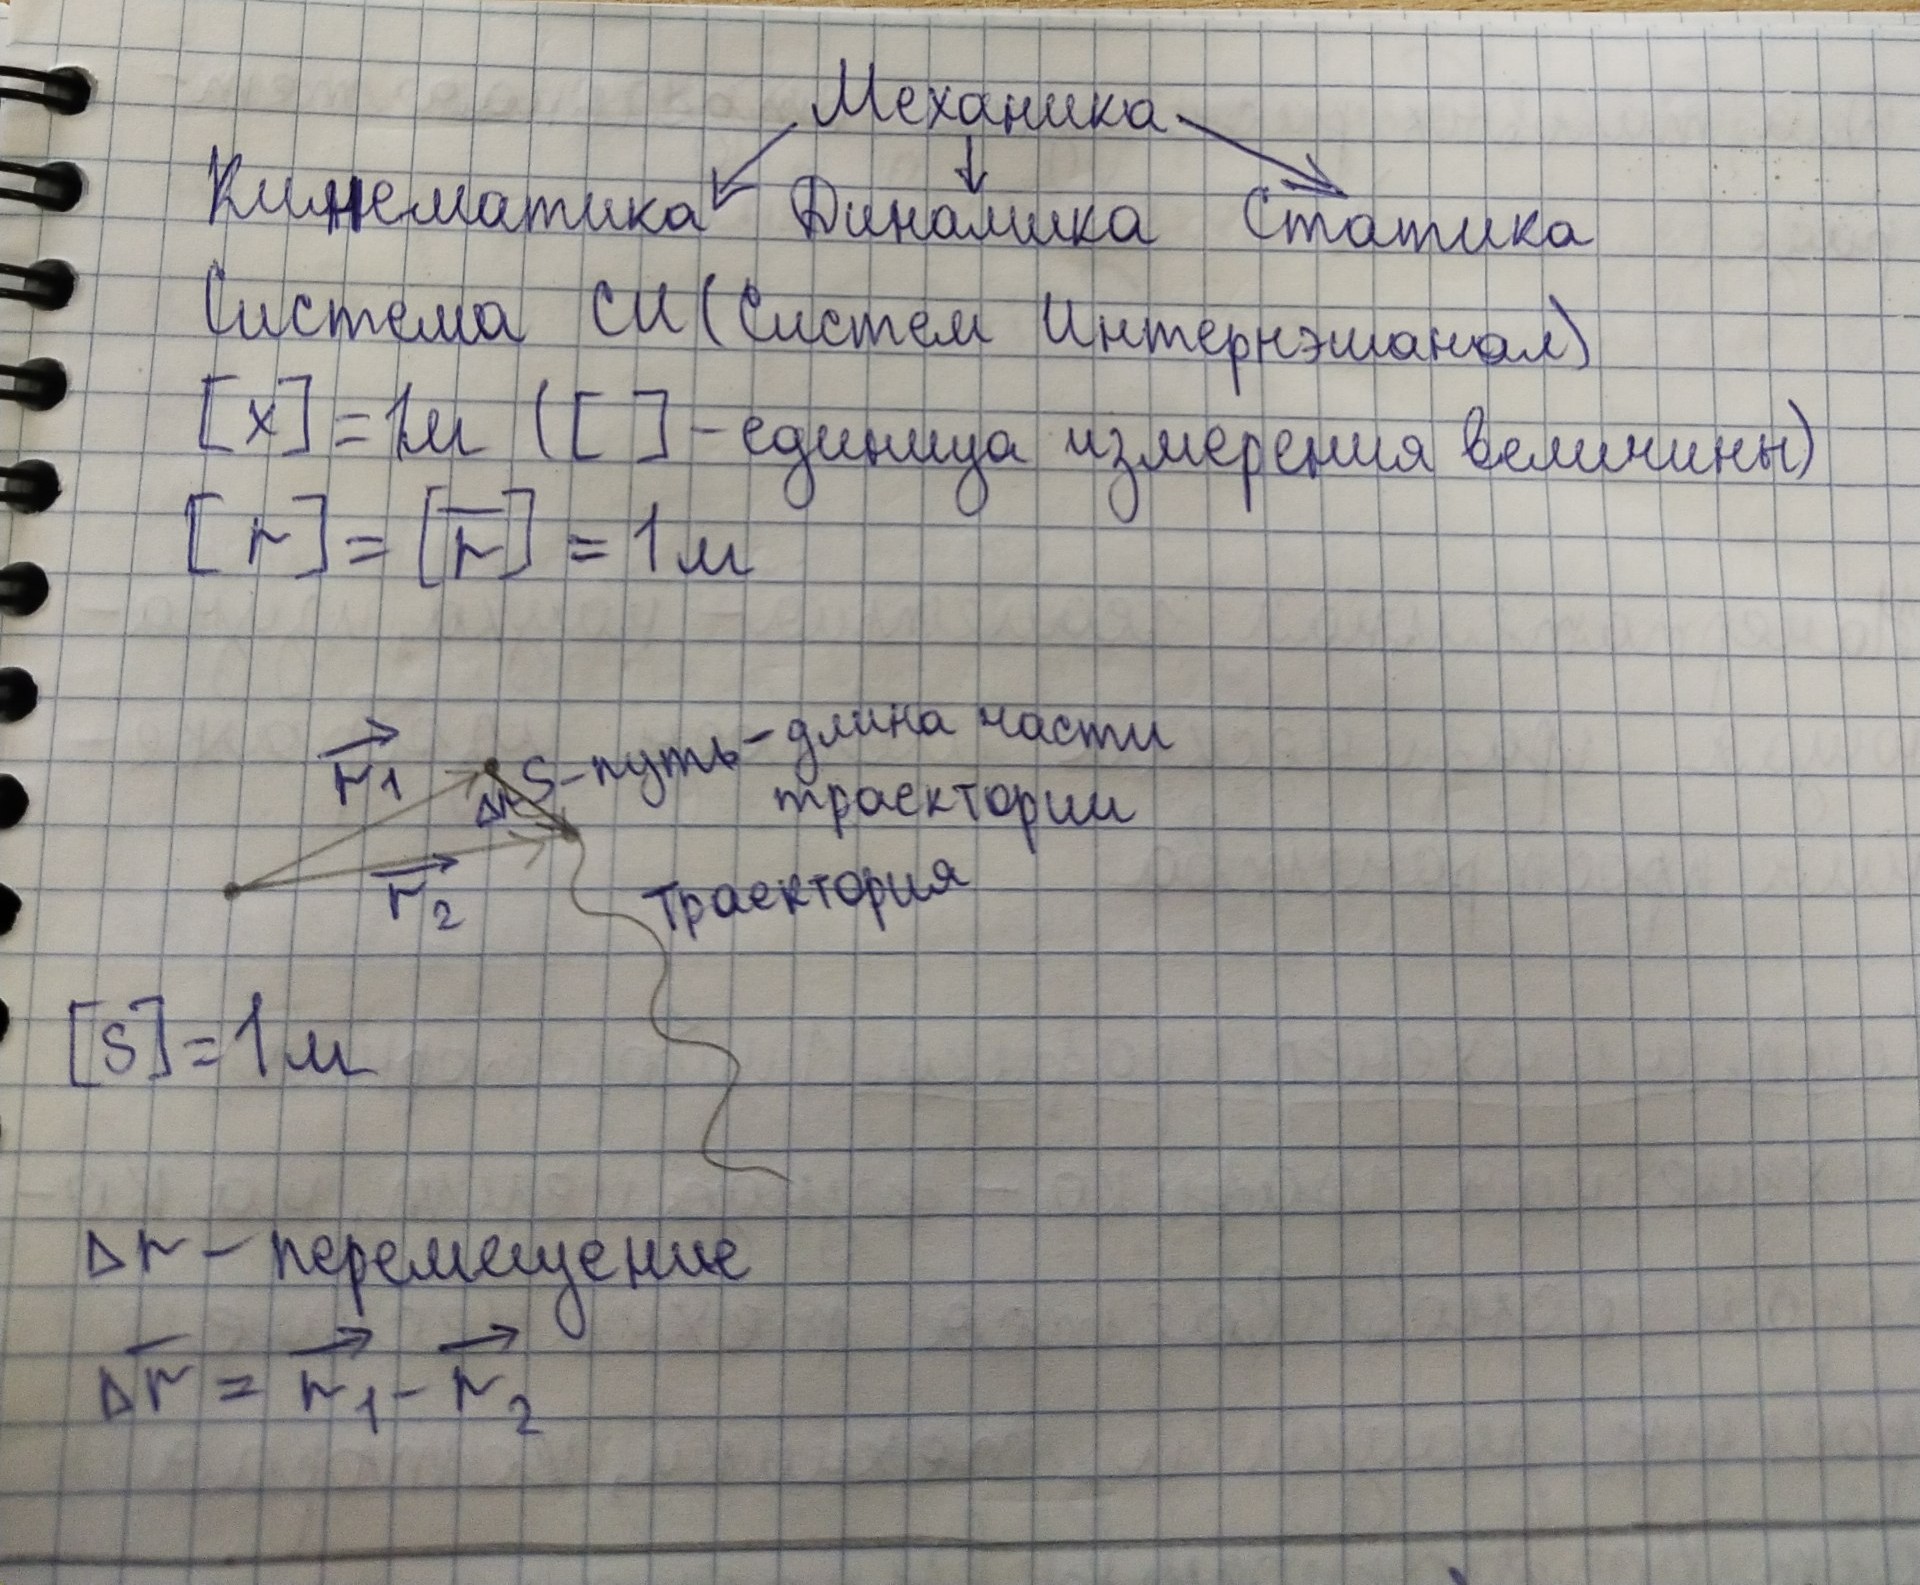 Механика
Кинематика Динамика Статика
Система СИ (Систем Интернэшанал)
[x] = 1м ([ ] - единица измерения величины)
[r] = [r̅] = 1м
r⃗1
Δr S - путь - длина части
траектории
r⃗2
траектория
[S] = 1м
Δr - перемещение
Δr̅ = r⃗1 - r⃗2